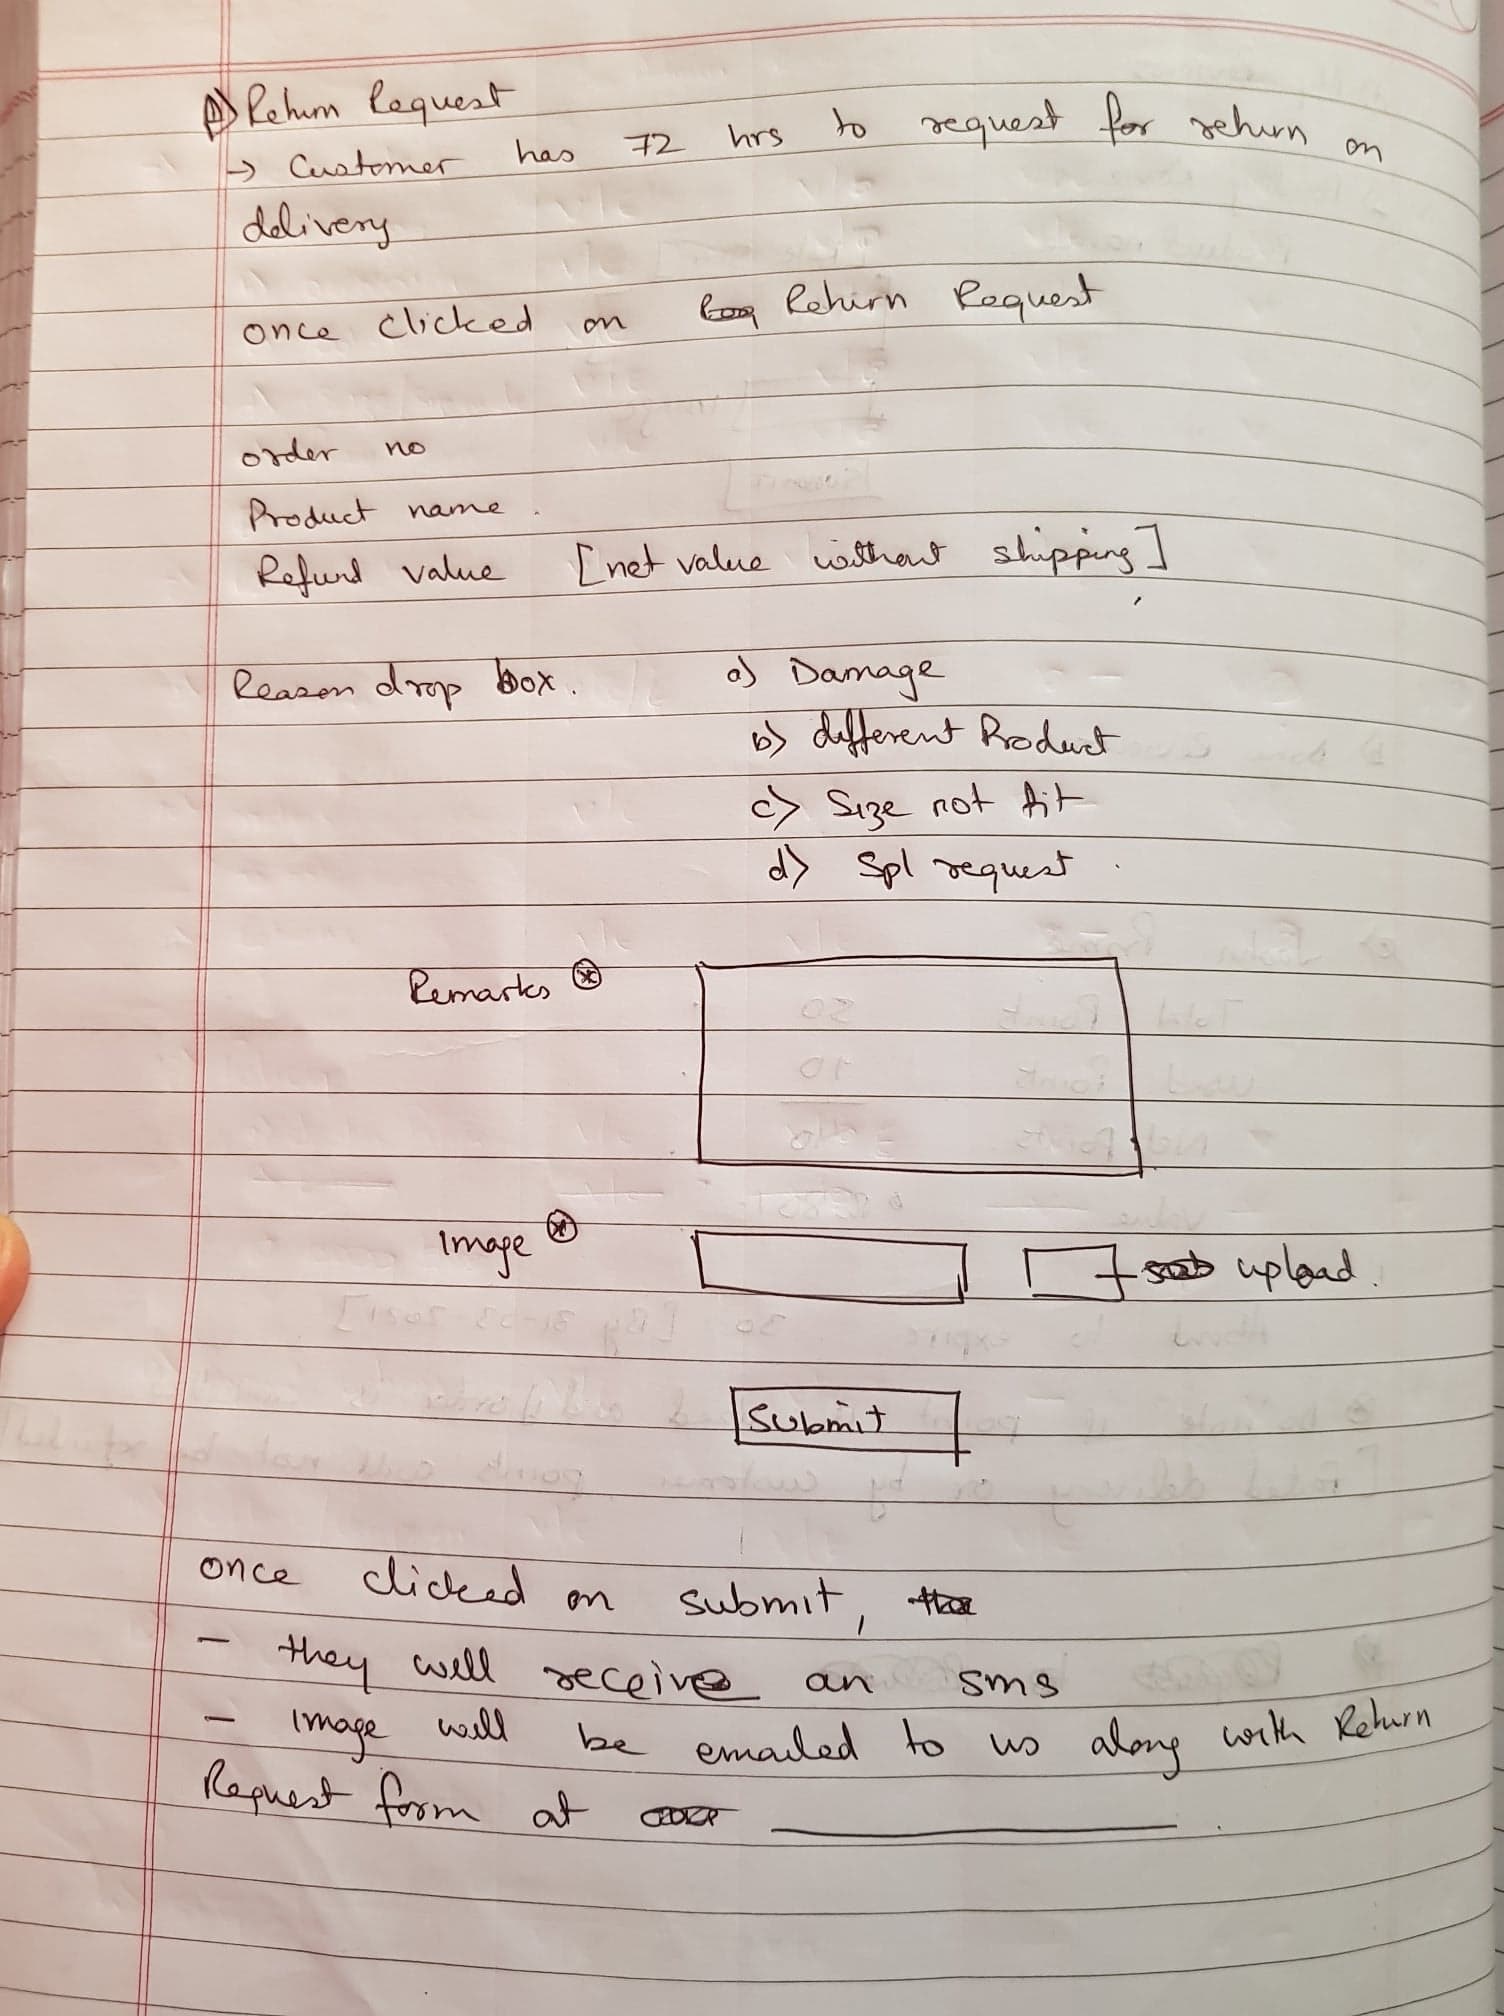 A) Return Request
→ Customer has 72 hrs to request for return on
delivery
once clicked on Return Request
order no
Product name .
Refund value [net value without shipping]
Reason drop box. a) Damage
b) different Product
c) Size not fit
d) Spl request .
Remarks *
Image * upload.
Submit
once clicked on submit,
- they will receive an sms
- Image will be emailed to us along with Return
Request form at ____________ .